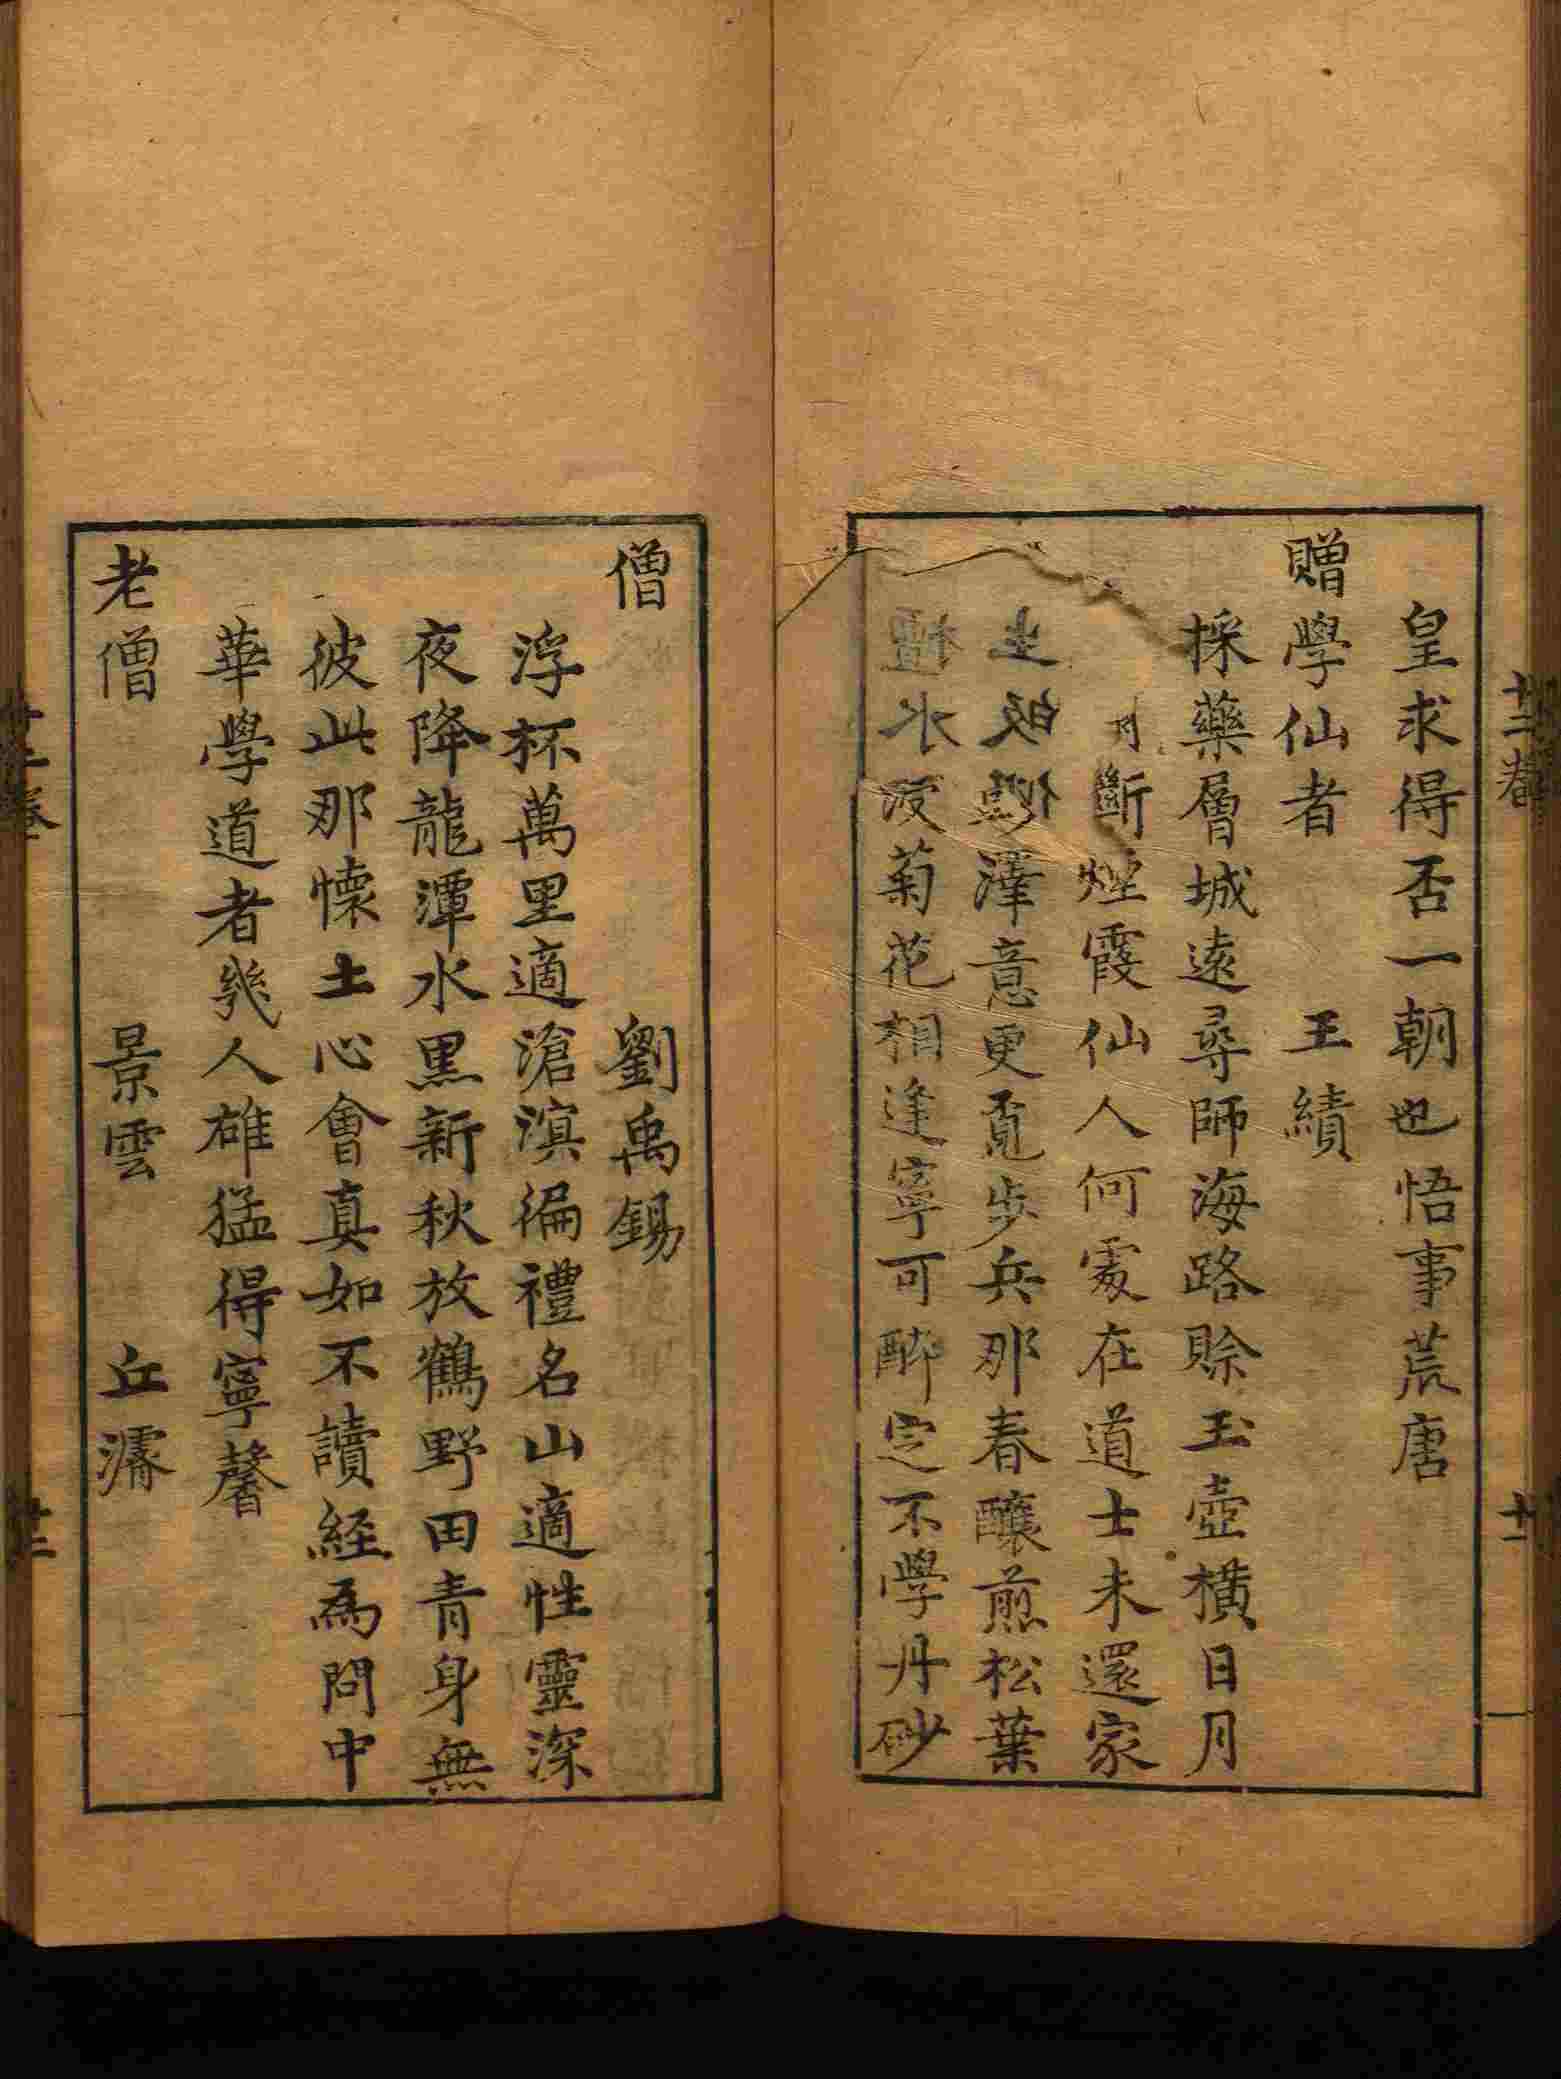 皇求得否一朝也悟事荒唐
贈學仙者 王績
採藥層城遠尋師海路賒玉壺橫日月
斷煙霞仙人何處在道士未還家
澤意更覔步兵那春釀煎松葉
浸菊花相逢寧可醉定不學丹砂
十二卷 十一
僧 劉禹錫
浮杯萬里適滄溟徧禮名山適性靈深
夜降龍潭水黑新秋放鶴野田青身無
彼此那懷土心會真如不讀經為問中
華學道者幾人雄猛得寧馨
老僧 景雲 丘濬